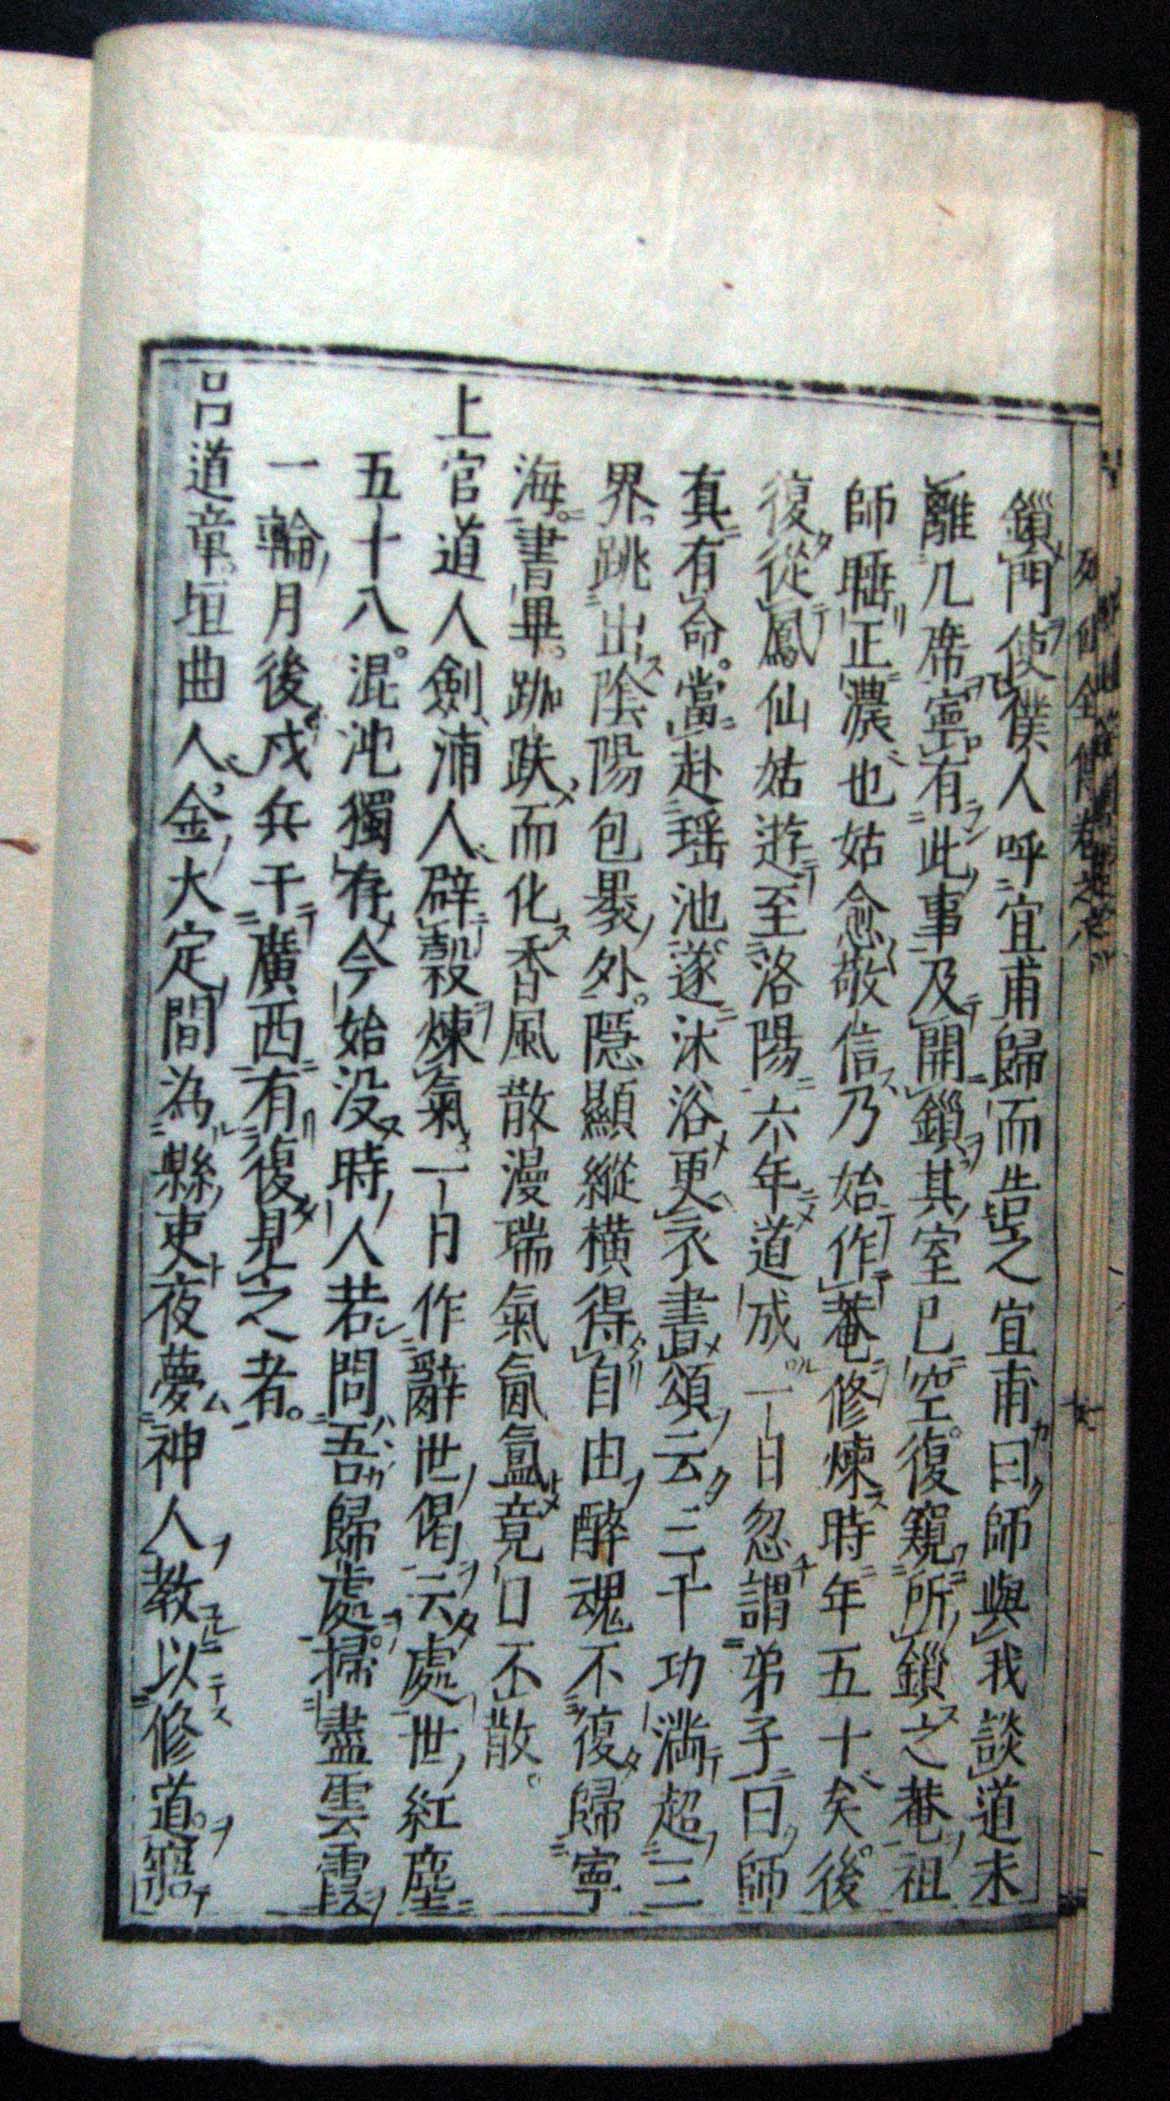 鎖門使僕人呼宜甫歸而告之宜甫曰師與我談道未
離几席寧有此事及開鎖其室已空復窺所鎖之菴祖
師睡正濃也姑愈敬信乃始作菴修煉時年五十矣後
復從鳳仙姑遊至洛陽六年道成一日忽謂弟子曰師
真有命當赴瑤池遂沐浴更衣書頌云三千功滿超三
界跳出陰陽包裹外隱顯縱橫得自由醉魂不復歸寧
海書畢跏趺而化香風散漫瑞氣氤氳竟日不散
上官道人劍浦人辟穀煉氣一日作辭世偈云處世紅塵
五十八混沌獨存今始没時人若問吾歸處掃盡雲霞
一輪月後戍兵干廣西有復見之者
呂道章垣曲人金大定間為縣吏夜夢神人教以修道寤